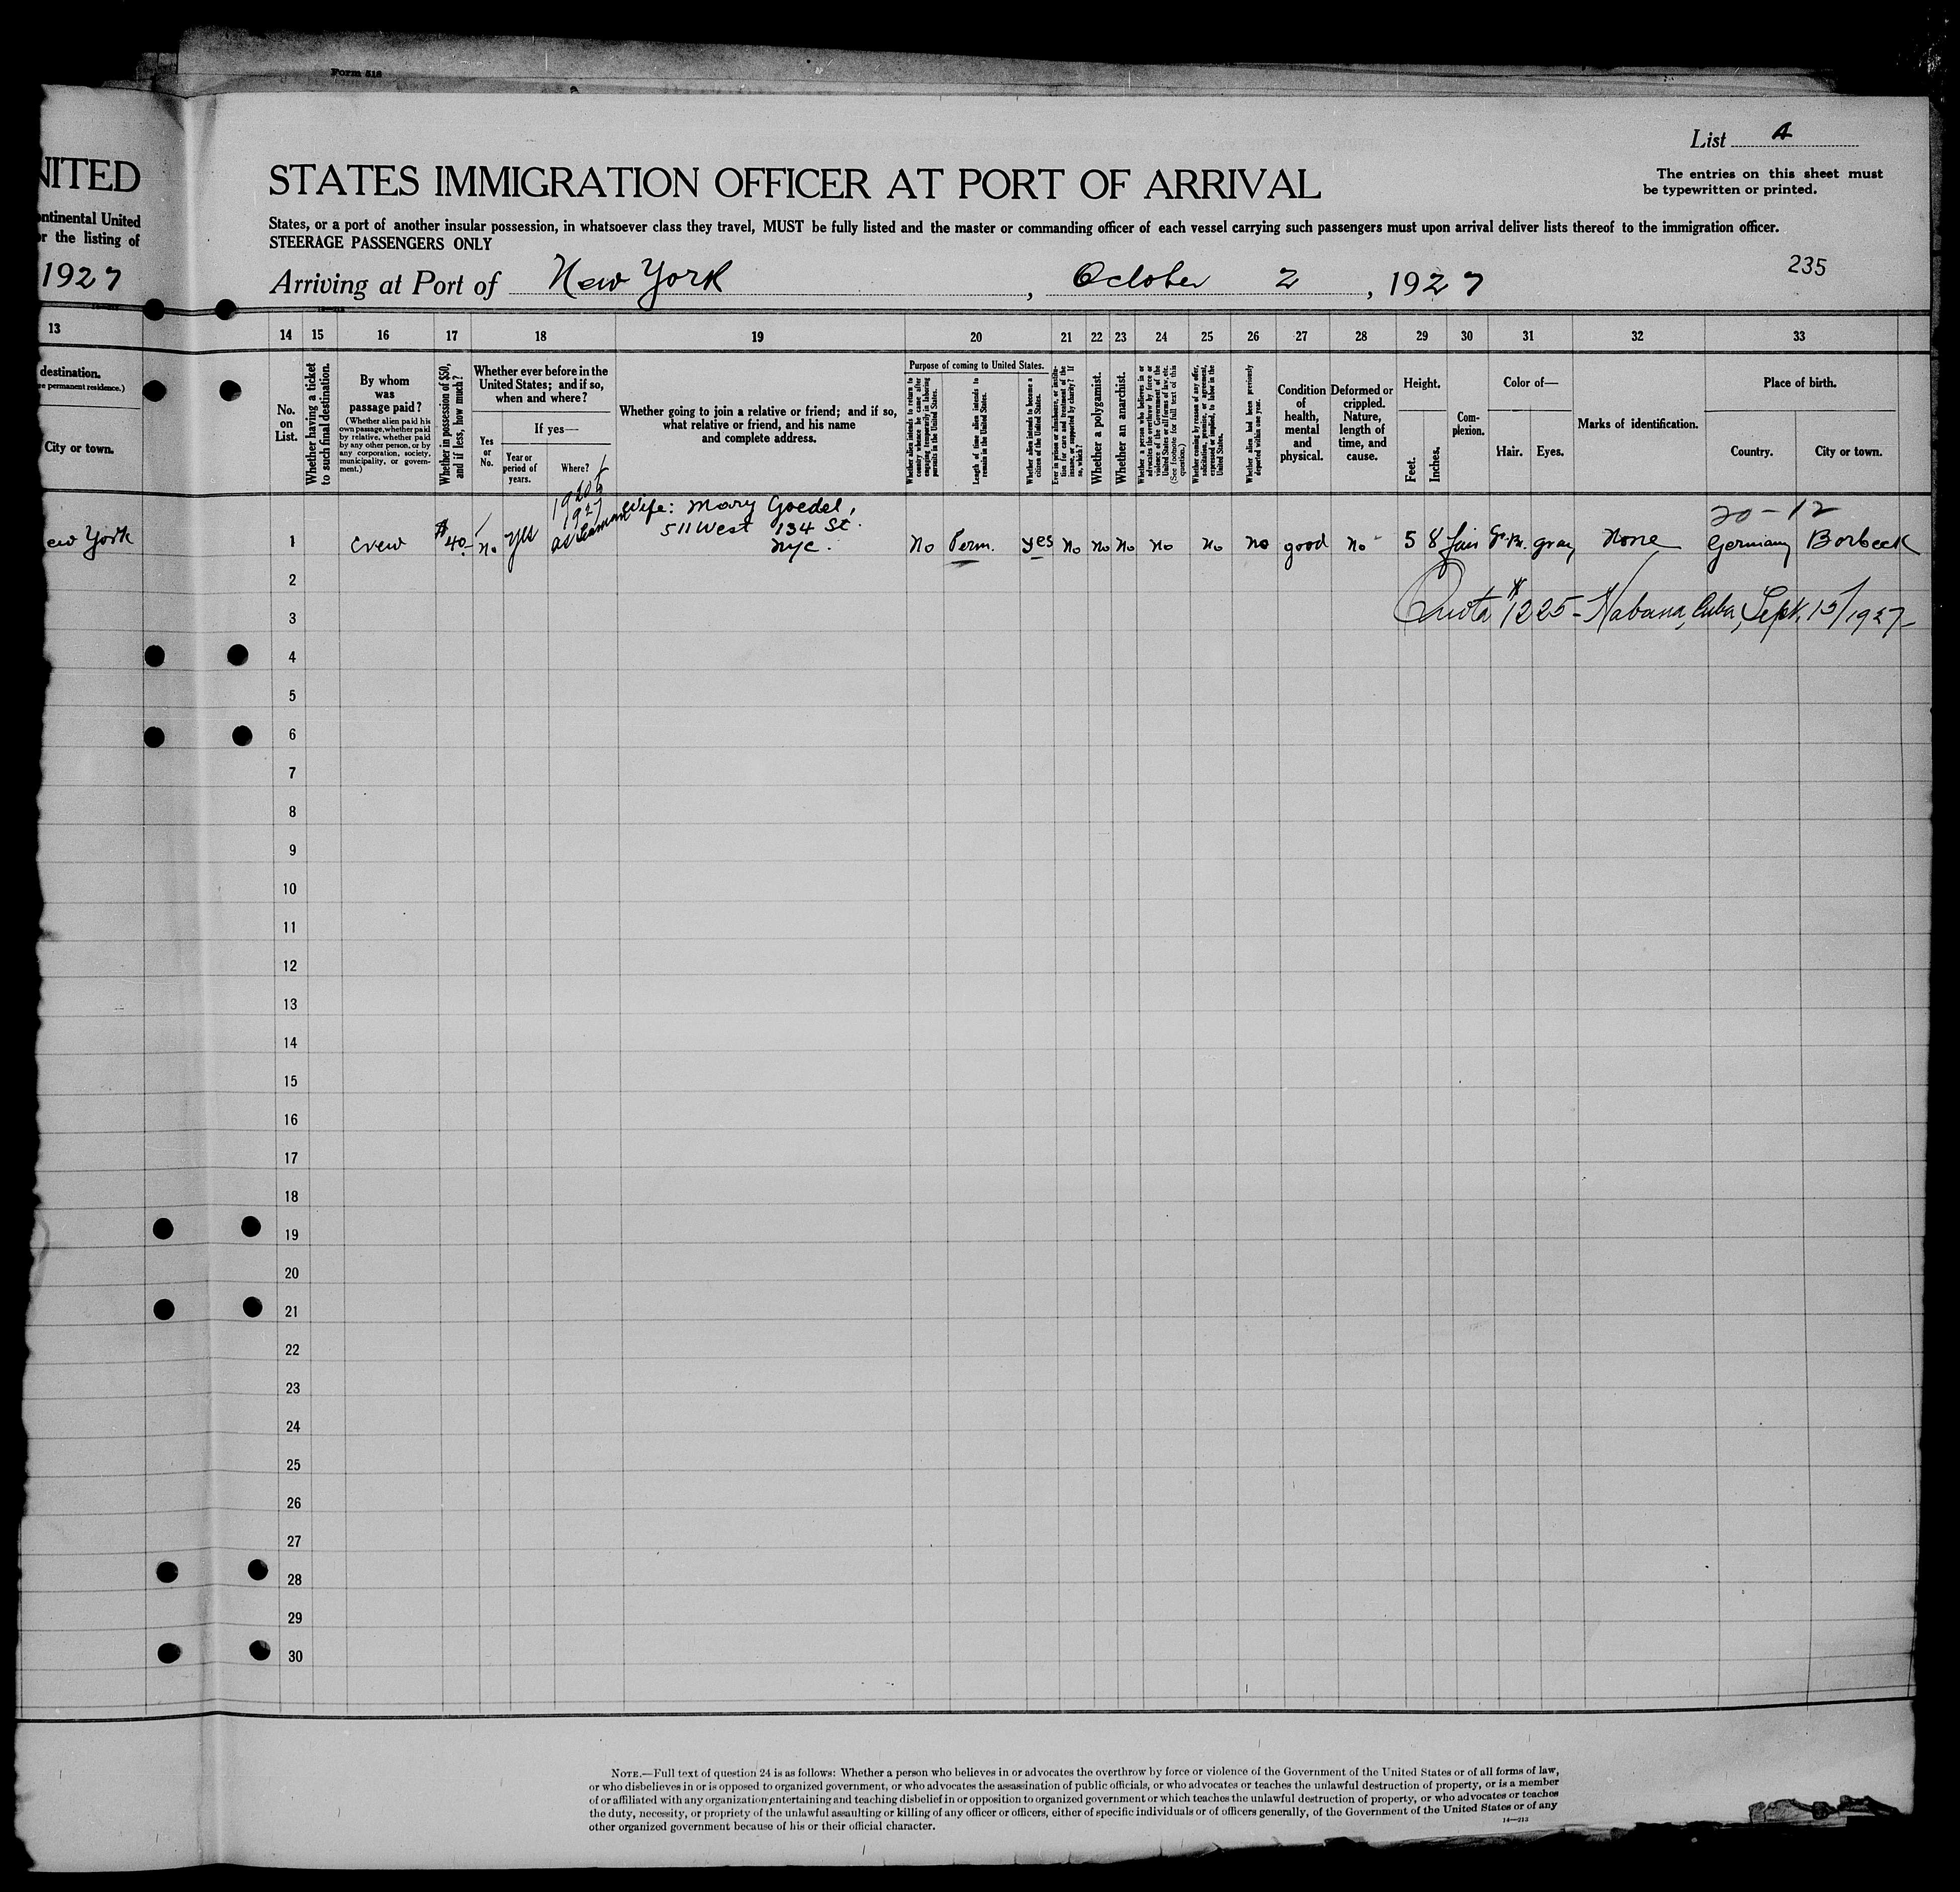 Form 518
List A
The entries on this sheet must
be typewritten or printed.
NITED
STATES IMMIGRATION OFFICER AT PORT OF ARRIVAL
ontinental United
or the listing of
States, or a port of another insular possession, in whatsoever class they travel, MUST be fully listed and the master or commanding officer of each vessel carrying such passengers must upon arrival deliver lists thereof to the immigration officer.
STEERAGE PASSENGERS ONLY
1927
Arriving at Port of New York, October 2, 1927
235
13 14 15 16 17 18 19 20 21 22 23 24 25 26 27 28 29 30 31 32 33
destination.
e permanent residence.)
City or town.
No.
on
List.
Whether having a ticket
to such final destination.
By whom
was
passage paid?
(Whether alien paid his
own passage, whether paid
by relative, whether paid
by any other person, or by
any corporation, society,
municipality, or govern-
ment.)
Whether in possession of $50,
and if less, how much?
Whether ever before in the
United States; and if so,
when and where?
Yes
or
No.
If yes—
Year or
period of
years.
Where?
Whether going to join a relative or friend; and if so,
what relative or friend, and his name
and complete address.
Purpose of coming to United States.
Whether alien intends to return to
country whence he came after
engaging temporarily in laboring
pursuits in the United States.
Length of time alien intends to
remain in the United States.
Whether alien intends to become a
citizen of the United States.
Ever in prison or almshouse, or institu-
tion for care and treatment of the
insane, or supported by charity? If
so, which?
Whether a polygamist.
Whether an anarchist.
Whether a person who believes in or
advocates the overthrow by force or
violence of the Government of the
United States or all forms of law, etc.
(See footnote for full text of this
question.)
Whether coming by reason of any offer,
solicitation, promise, or agreement,
expressed or implied, to labor in the
United States.
Whether alien had been previously
deported within one year.
Condition
of
health,
mental
and
physical.
Deformed or
crippled.
Nature,
length of
time, and
cause.
Height.
Feet.
Inches.
Com-
plexion.
Color of—
Hair.
Eyes.
Marks of identification.
Place of birth.
Country.
City or town.
1927
as Seaman
Wife: Mary Goedel,
511 West 134 St.
NYC.
20-12
ew York 1 Crew $40- no yes No Perm. yes no no no no no no good no 5 8 fair gray none Germany Borbeck
2
Quota #1225 - Habana, Cuba, Sept. 15/1927
3
4
5
6
7
8
9
10
11
12
13
14
15
16
17
18
19
20
21
22
23
24
25
26
27
28
29
30
NOTE.—Full text of question 24 is as follows: Whether a person who believes in or advocates the overthrow by force or violence of the Government of the United States or of all forms of law,
or who disbelieves in or is opposed to organized government, or who advocates the assassination of public officials, or who advocates or teaches the unlawful destruction of property, or is a member
of or affiliated with any organization entertaining and teaching disbelief in or opposition to organized government or which teaches the unlawful destruction of property, or who advocates or teaches
the duty, necessity, or propriety of the unlawful assaulting or killing of any officer or officers, either of specific individuals or of officers generally, of the Government of the United States or of any
other organized government because of his or their official character.
14—213